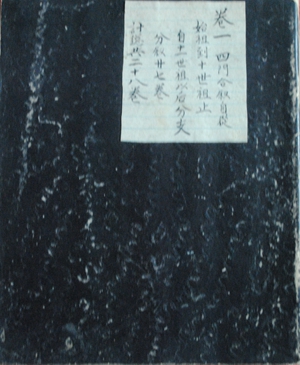 卷一 四门合叙自从
始祖到十世祖止
自十一世祖以后分支
分叙廿七卷
计谱共二十八卷